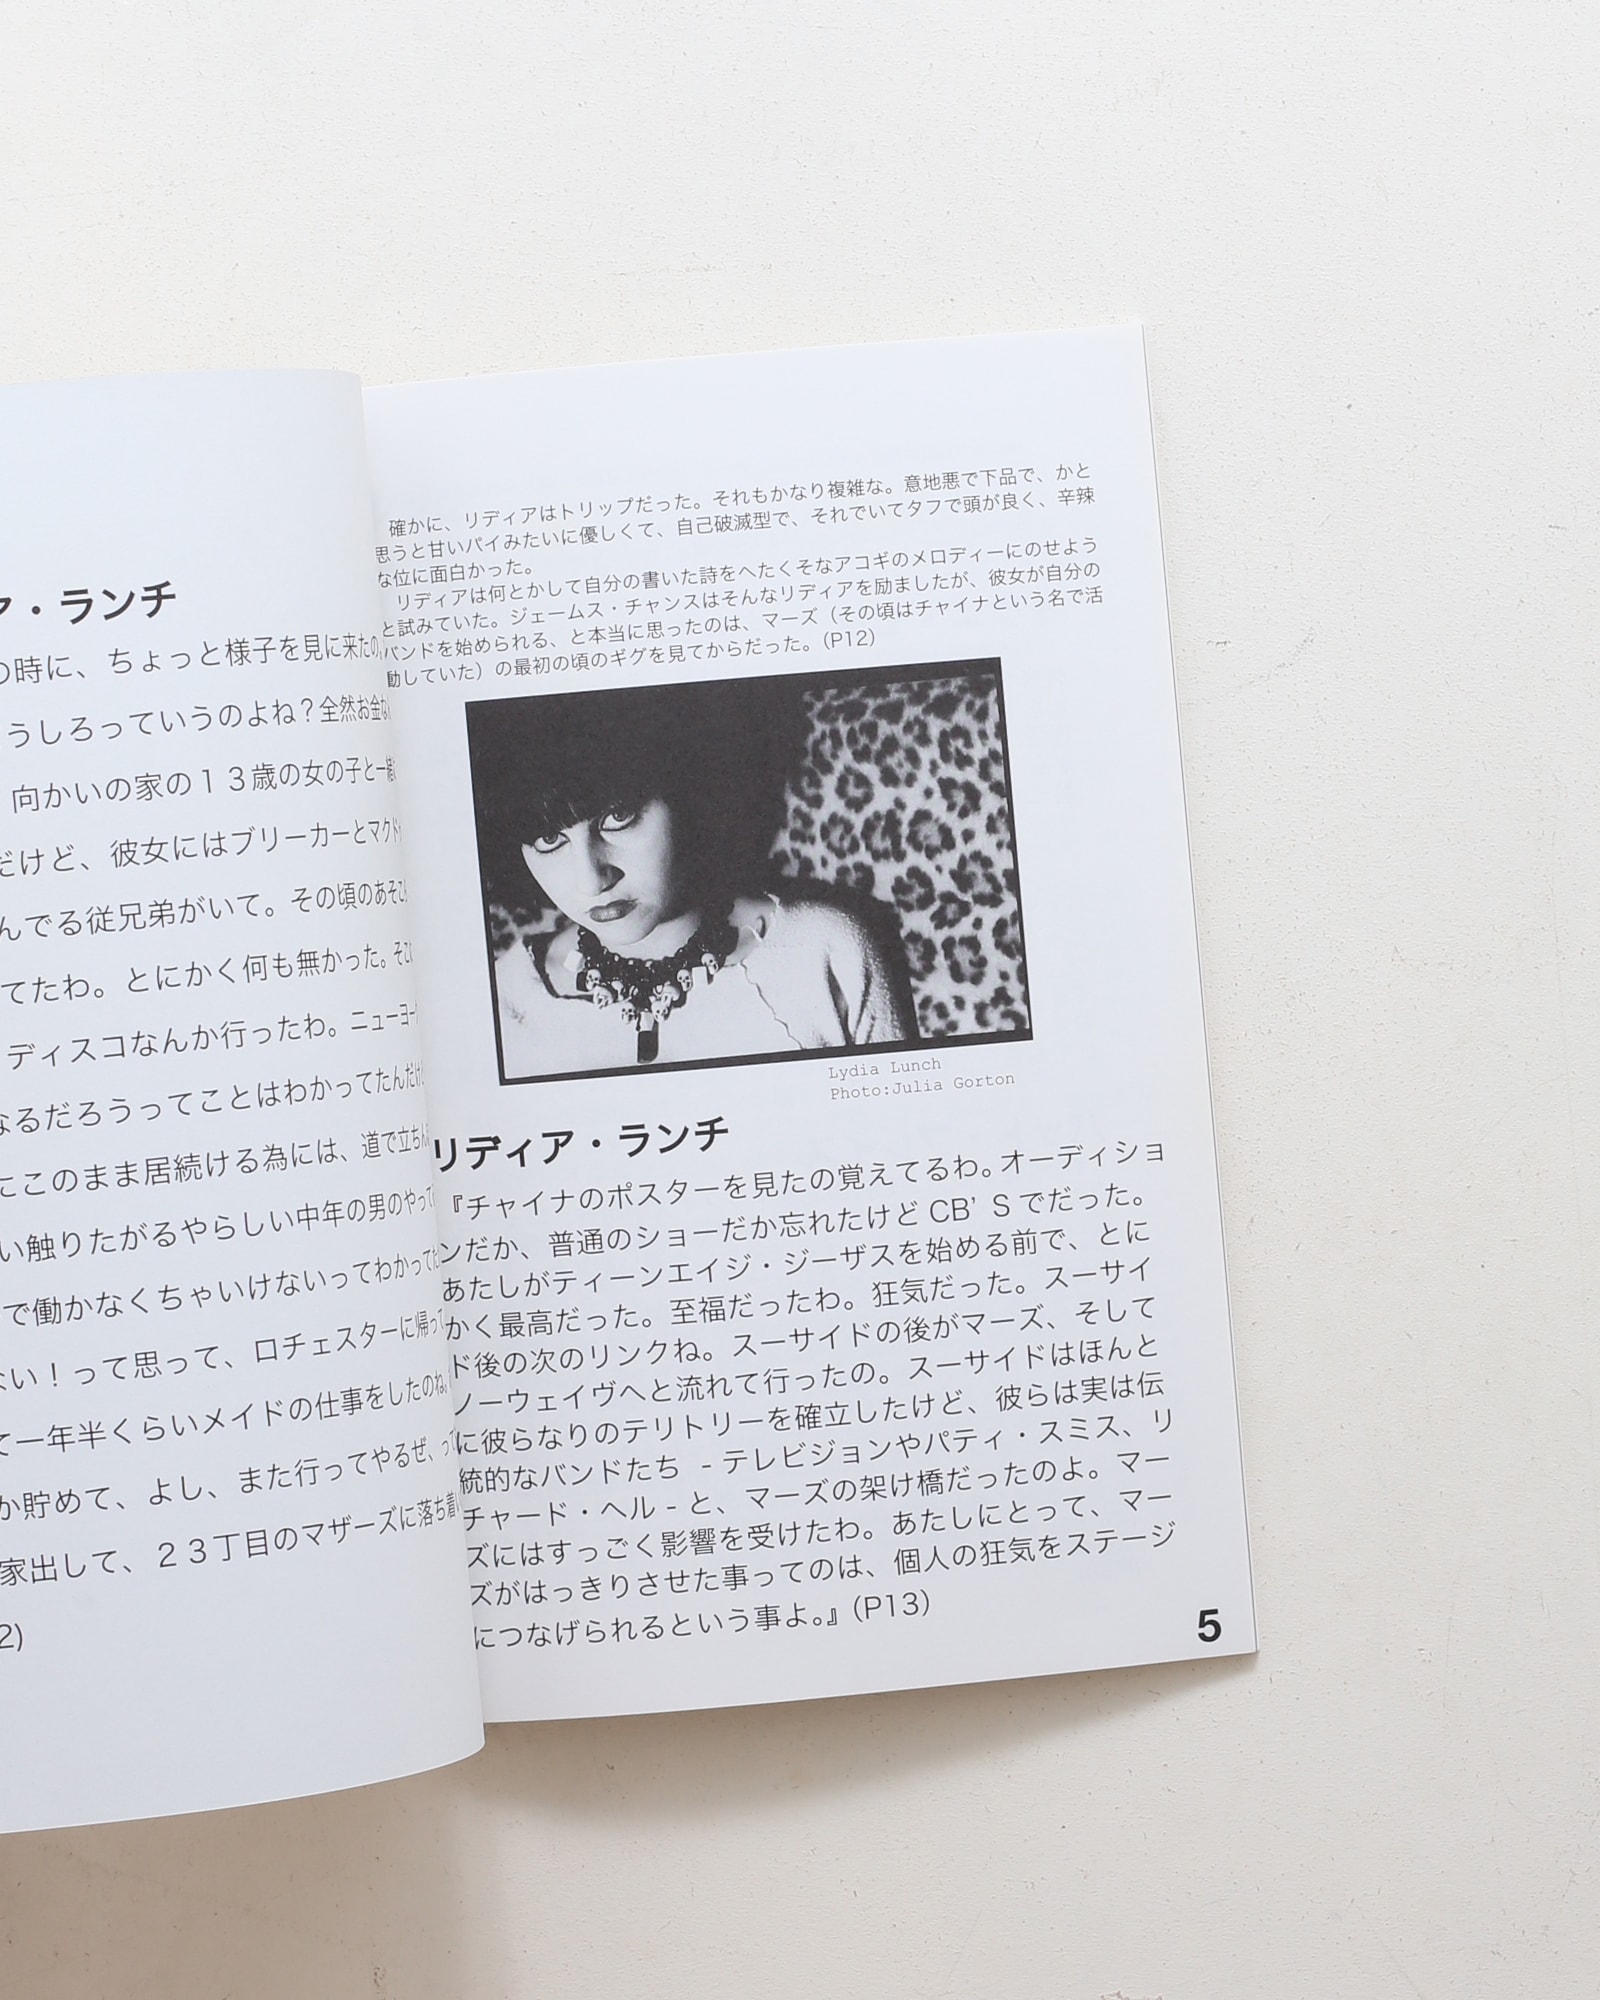 ア・ランチ
の時に、ちょっと様子を見に来たの。
うしろっていうのよね？全然お金な
向かいの家の１３歳の女の子と一緒に
だけど、彼女にはブリーカーとマクド
んでる従兄弟がいて。その頃のあそこ
てたわ。とにかく何も無かった。そこ
ディスコなんか行ったわ。ニューヨー
なるだろうってことはわかってたんだけ
にこのまま居続ける為には、道で立ちん
い触りたがるやらしい中年の男のやって
で働かなくちゃいけないってわかってた
ない！って思って、ロチェスターに帰って
て一年半くらいメイドの仕事をしたのね。
か貯めて、よし、また行ってやるぜ、って
家出して、２３丁目のマザーズに落ち着
2)
確かに、リディアはトリップだった。それもかなり複雑な。意地悪で下品で、かと
思うと甘いパイみたいに優しくて、自己破滅型で、それでいてタフで頭が良く、辛辣
な位に面白かった。
リディアは何とかして自分の書いた詩をへたくそなアコギのメロディーにのせよう
と試みていた。ジェームス・チャンスはそんなリディアを励ましたが、彼女が自分の
バンドを始められる、と本当に思ったのは、マーズ（その頃はチャイナという名で活
動していた）の最初の頃のギグを見てからだった。（P12）
Lydia Lunch
Photo:Julia Gorton
リディア・ランチ
『チャイナのポスターを見たの覚えてるわ。オーディショ
ンだか、普通のショーだか忘れたけど CB’S でだった。
あたしがティーンエイジ・ジーザスを始める前で、とに
かく最高だった。至福だったわ。狂気だった。スーサイ
ド後の次のリンクね。スーサイドの後がマーズ、そして
ノーウェイヴへと流れて行ったの。スーサイドはほんと
に彼らなりのテリトリーを確立したけど、彼らは実は伝
統的なバンドたち - テレビジョンやパティ・スミス、リ
チャード・ヘル - と、マーズの架け橋だったのよ。マー
ズにはすっごく影響を受けたわ。あたしにとって、マー
ズがはっきりさせた事ってのは、個人の狂気をステージ
につなげられるという事よ。』（P13）
5